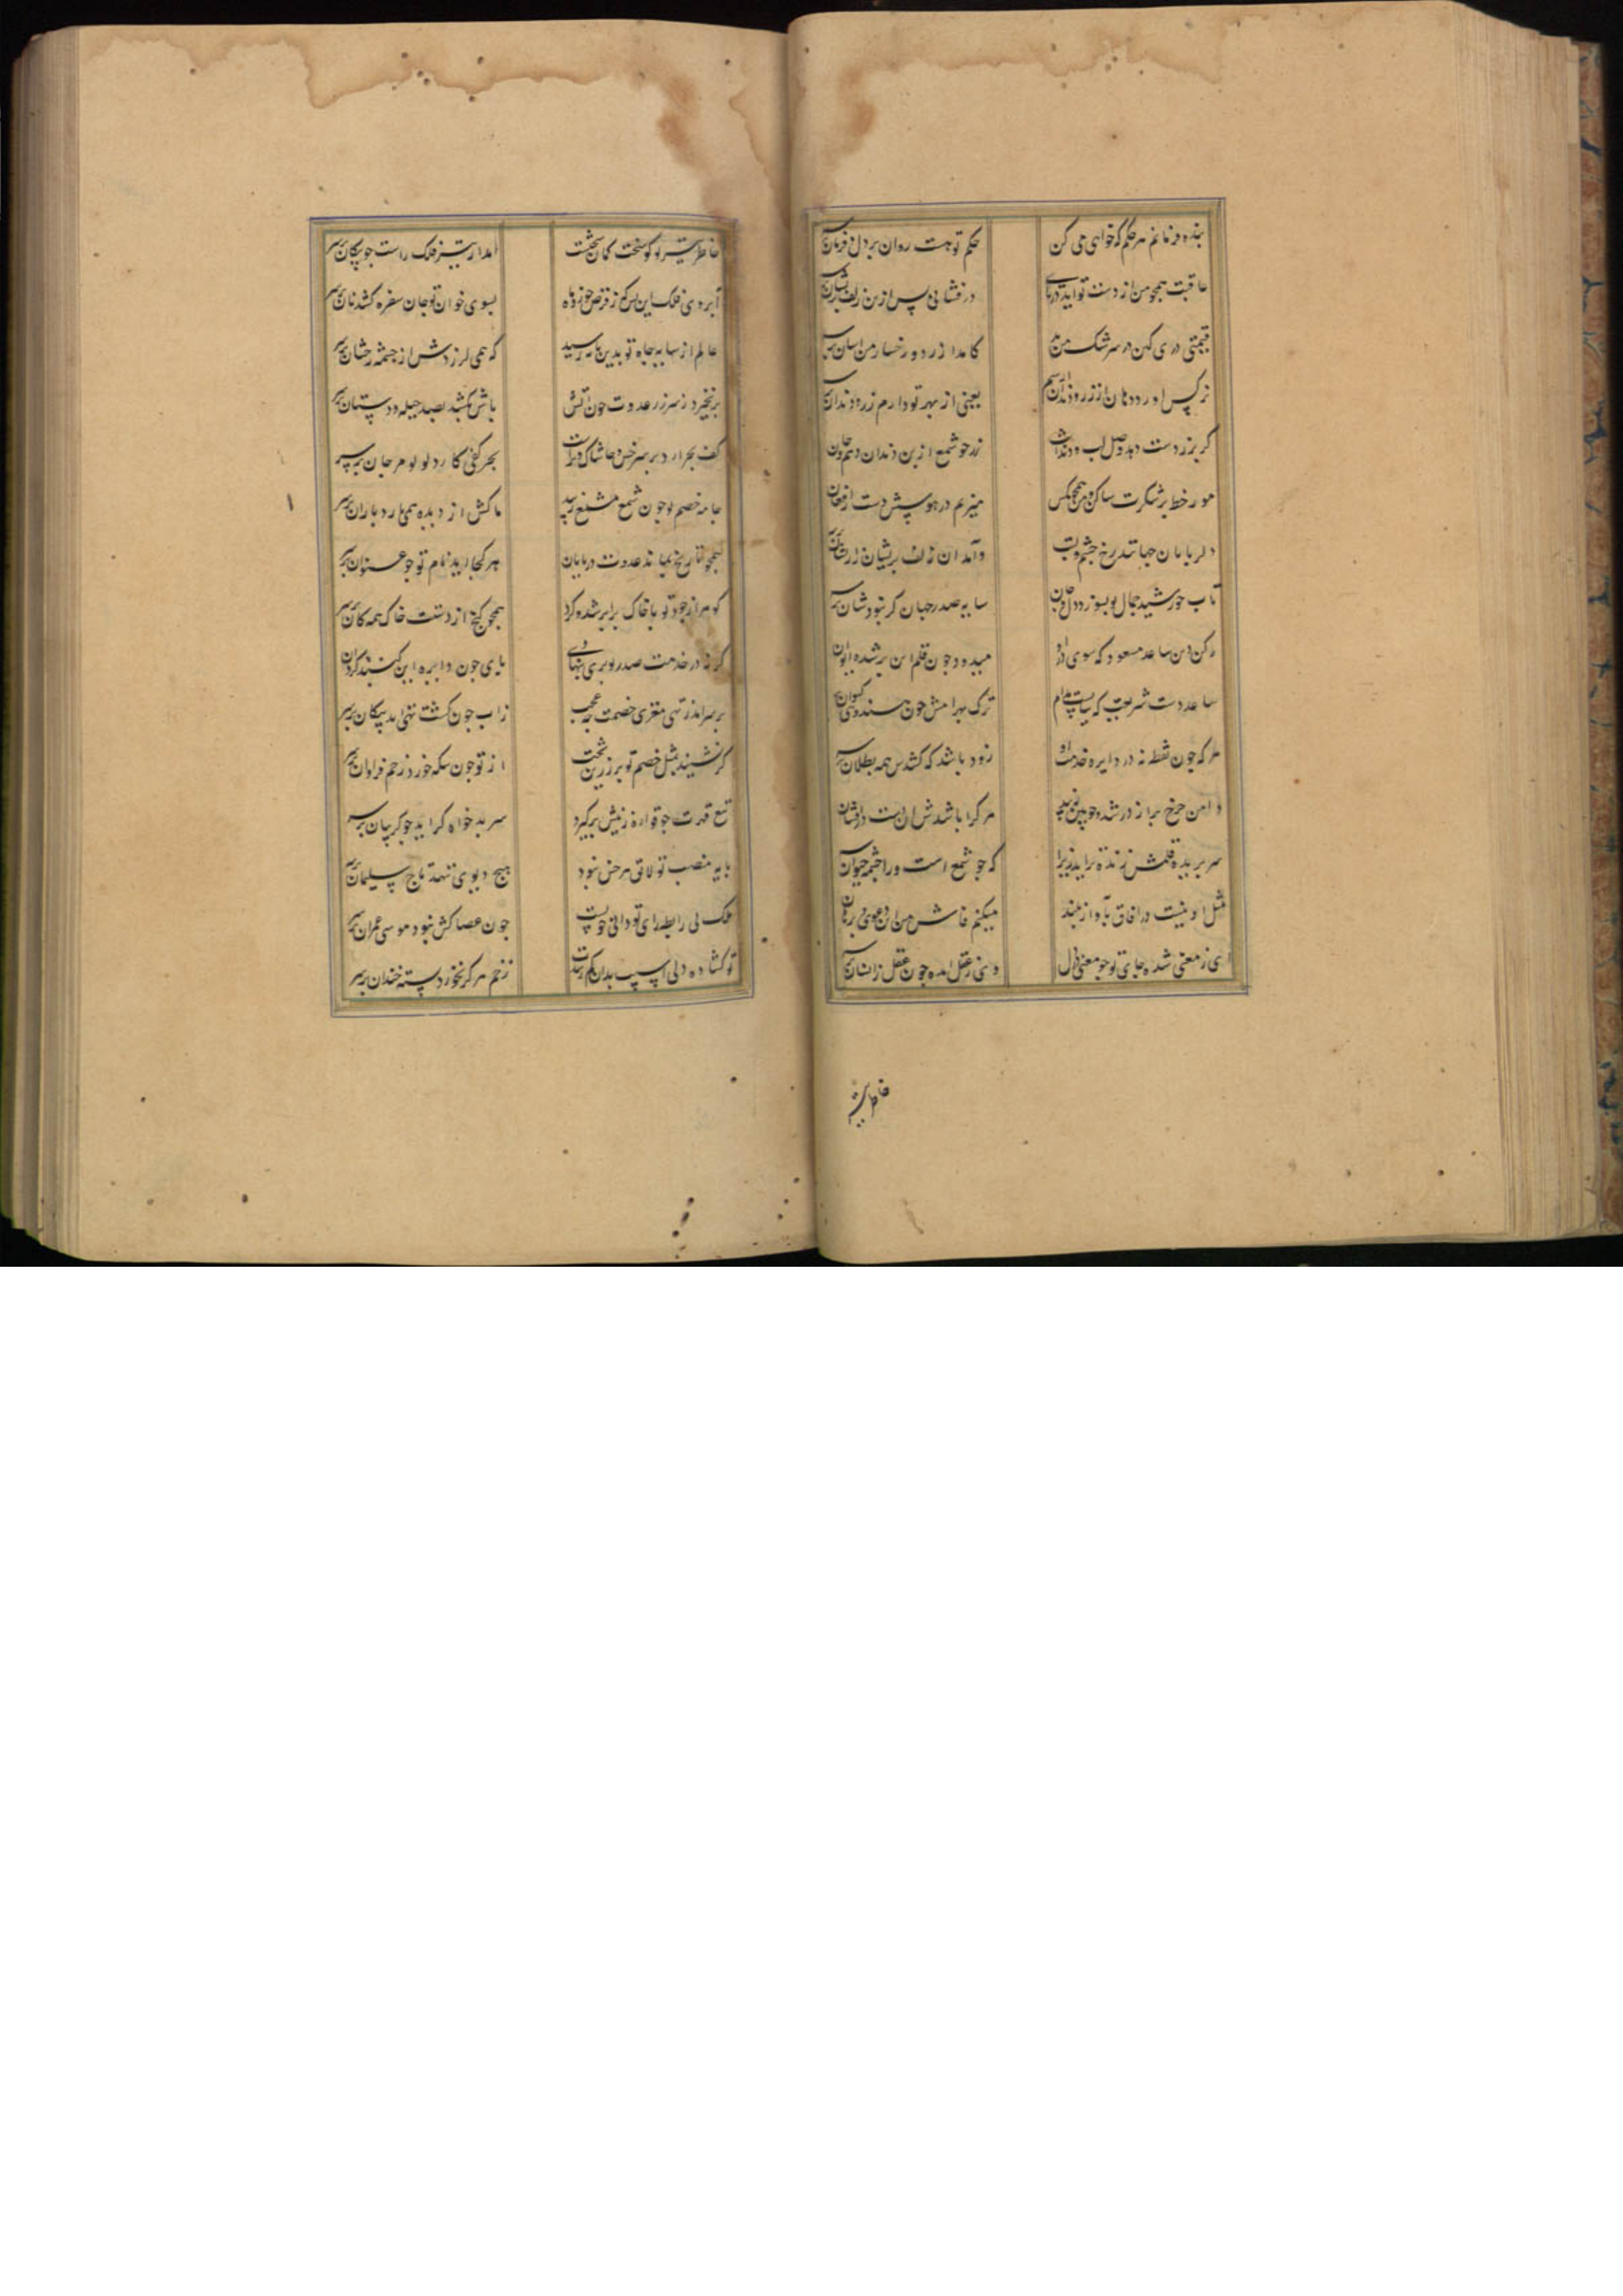 بنده فرمانم هر حکم که خواهی می کن
حکم تو هست روان بر دل و فرمان بر سر
عاقبت همچو من از دست تو اید در پای
در فشانی پس ازین زلف پریشان بر سر
قیمتی دری کهن در سر شک من
کامد از زر دو رخسار من اسان بر سر
نرکس اورد دهان از زر و دندان
یعنی از بهر تو دارم زر و دندان بر سر
کر برز دست دهد وصل لب و دندانت
زر چو شمع از بن دندان دهم و جان بر سر
مور خط بر شکرت ساکن و من همچو مکس
میزنم در هوسش دست ز افغان بر سر
دلربایان جهانند رخ و چشم و لبت
وامد ان زلف پریشان ز ایشان بر سر
تاب خورشید جمال تو بسوزد دل و جان
سایه صدر جهان کر نبود شان بر سر
رکن دین صاعد مسعود که سوی در او
میدود چون قلم این بر شده ایوان بر سر
ساعد دست شریعت که
ترک بهرامش چون هندوی کیوان بر سر
هر که چون نقطه نه در دایره خدمت او
زود باشد که کشندش همه بطلان بر سر
دامن چرخ براز در شده
هر کرا باشدش ان دست در افشان بر سر
سر بریده قلمش زنده تر اید زیرا
که چو شمع است ورا چشمه حیوان بر سر
مثل او نیست در افاق باواز بلند
میکنم فاش من این دعوی و برهان بر سر
ای ز معنی شده جای تو چو معنی در دل
وی ز عقل امده چون عقل ز انسان بر سر
خاطر تیر
خاطر تیر تو کو سخت کمان سخنست
امد از تیر فلک راست چو پیکان بر سر
ابروی فلک این بس که ز قرص خور و ماه
بسوی خوان تو جان سفره کشد نان بر سر
عالم از سایه جاه تو بدین پایه رسید
که همی لرزدش از چشمه رخشان بر سر
بر نخیزد ز سر زر عدوت چون اتش
باش بکشند بصد حیله و دستان بر سر
کف بحر ار د بر سر خس و خاشاک
بحر کفی کارد لولو و مرجان بر سر
جامه خصم تو چون شمع مشمع زیبد
ماکش از دیده همی بارد باران بر سر
همچو تاریخ نماند عدوت در پایان
هر کجا اید نام تو چو عنوان بر سر
کوهر از جود تو با خاک برابر شد و کرد
همچو کنج از دستت خاک همه کان بر سر
کر نه در خدمت صدر تو بری بنهادی
پای چون دایره این کنبد کردان بر سر
بر سر امد ز تهی مغزی خصمت چه عجب
ز اب چون کشت تهی اید پیکان بر سر
کر نشیند بمثل خصم تو بر زرین تخت
از تو چون سکه خورد زخم فراوان بر سر
تیغ قهرت چو قواره ز تنش برکیرد
سر بدخواه کر اید چو کریبان بر سر
پایه منصب تو لایق هر خس نبود
هیچ دیوی ننهد تاج سلیمان بر سر
ملک بی رابطه رای تو دانی چونست
چون عصا کش نبود موسی عمران بر سر
تو کشاده دلی اسیب بدان کم رسدت
زخم هرکز نخورد پسته خندان بر سر